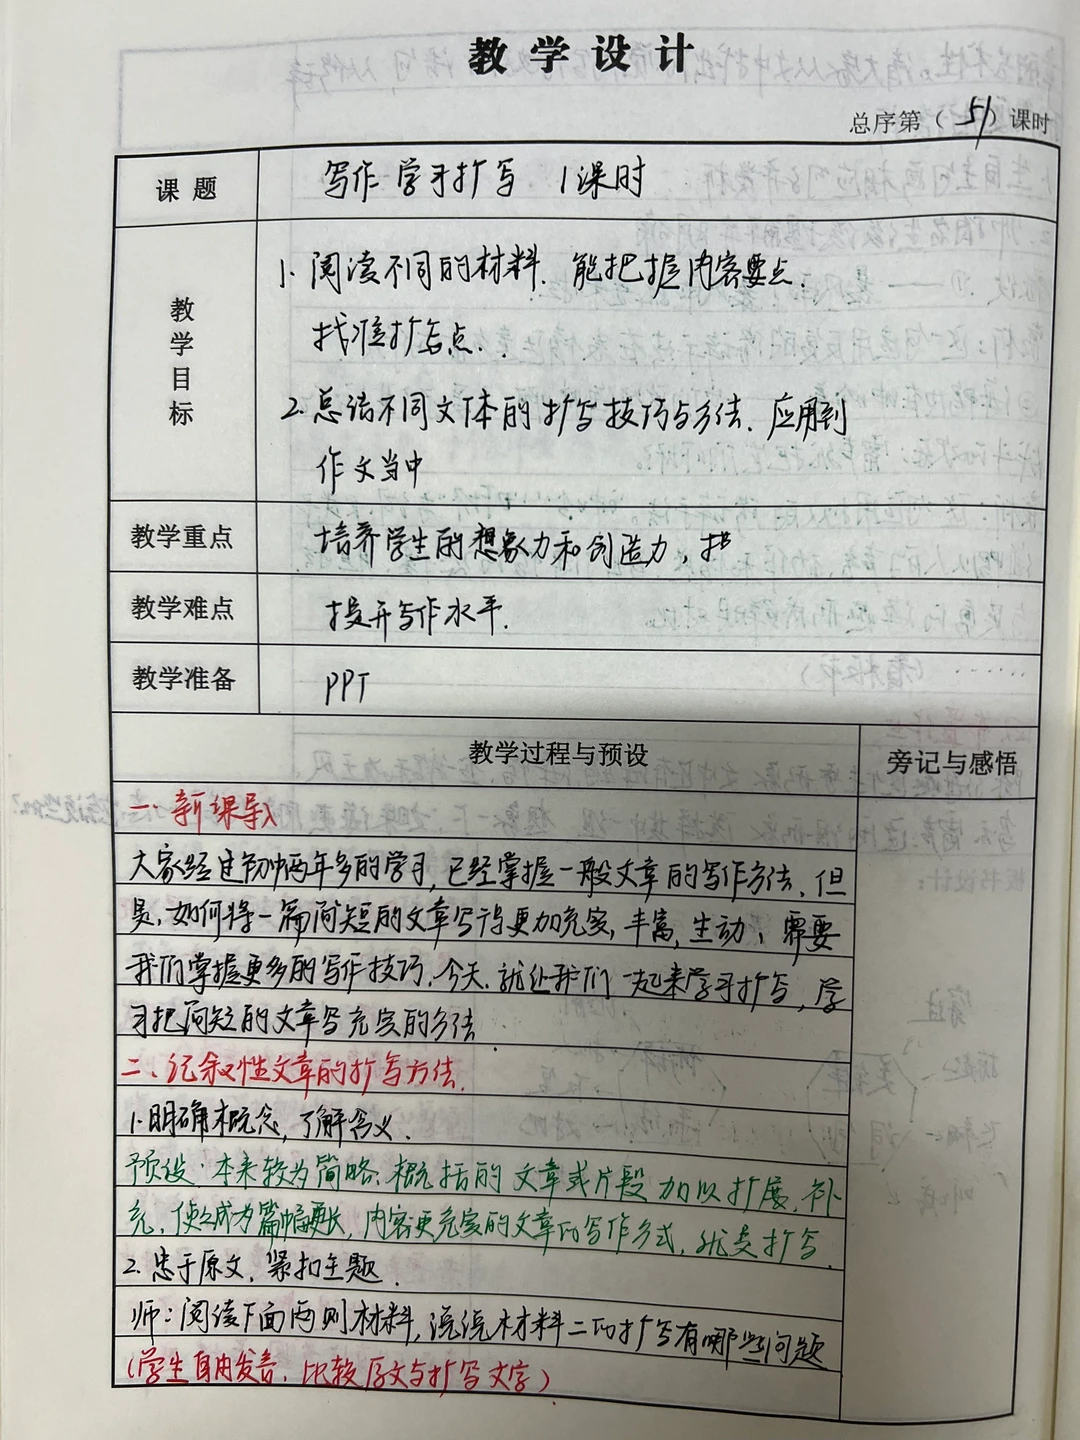 教学设计
总序第（51）课时
课题
写作 学习扩写 1课时
教学目标
1. 阅读不同的材料、能把握内容要点、
找准扩写点.
2. 总结不同文体的扩写技巧与方法、应用到
作文当中
教学重点
培养学生的想象力和创造力，
教学难点
提升写作水平.
教学准备
PPT
教学过程与预设
旁记与感悟
一、新课导入
大家经过初中两年多的学习，已经掌握一般文章的写作方法、但
是，如何将一篇简短的文章写得更加充实，丰富，生动，需要
我们掌握更多的写作技巧、今天、就让我们一起来学习扩写，学
习把简短的文章写充实的方法.
二、记叙性文章的扩写方法.
1. 明确概念，了解含义.
预设：本来较为简略、概括的文章或片段加以扩展、补
充，使之成为篇幅更长，内容更充实的文章的写作方式，就是扩写.
2. 忠于原文、紧扣主题.
师：阅读下面两则材料，说说材料二的扩写有哪些问题
（学生自由发言，比较原文与扩写文字）